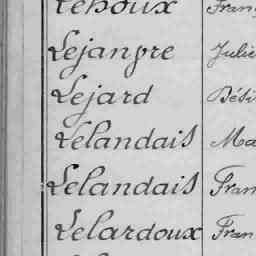 Lehoux
Lejangre Julie
Lejard Dési
Lelandais Ma
Lelandais Fran
Lelardoux Fran